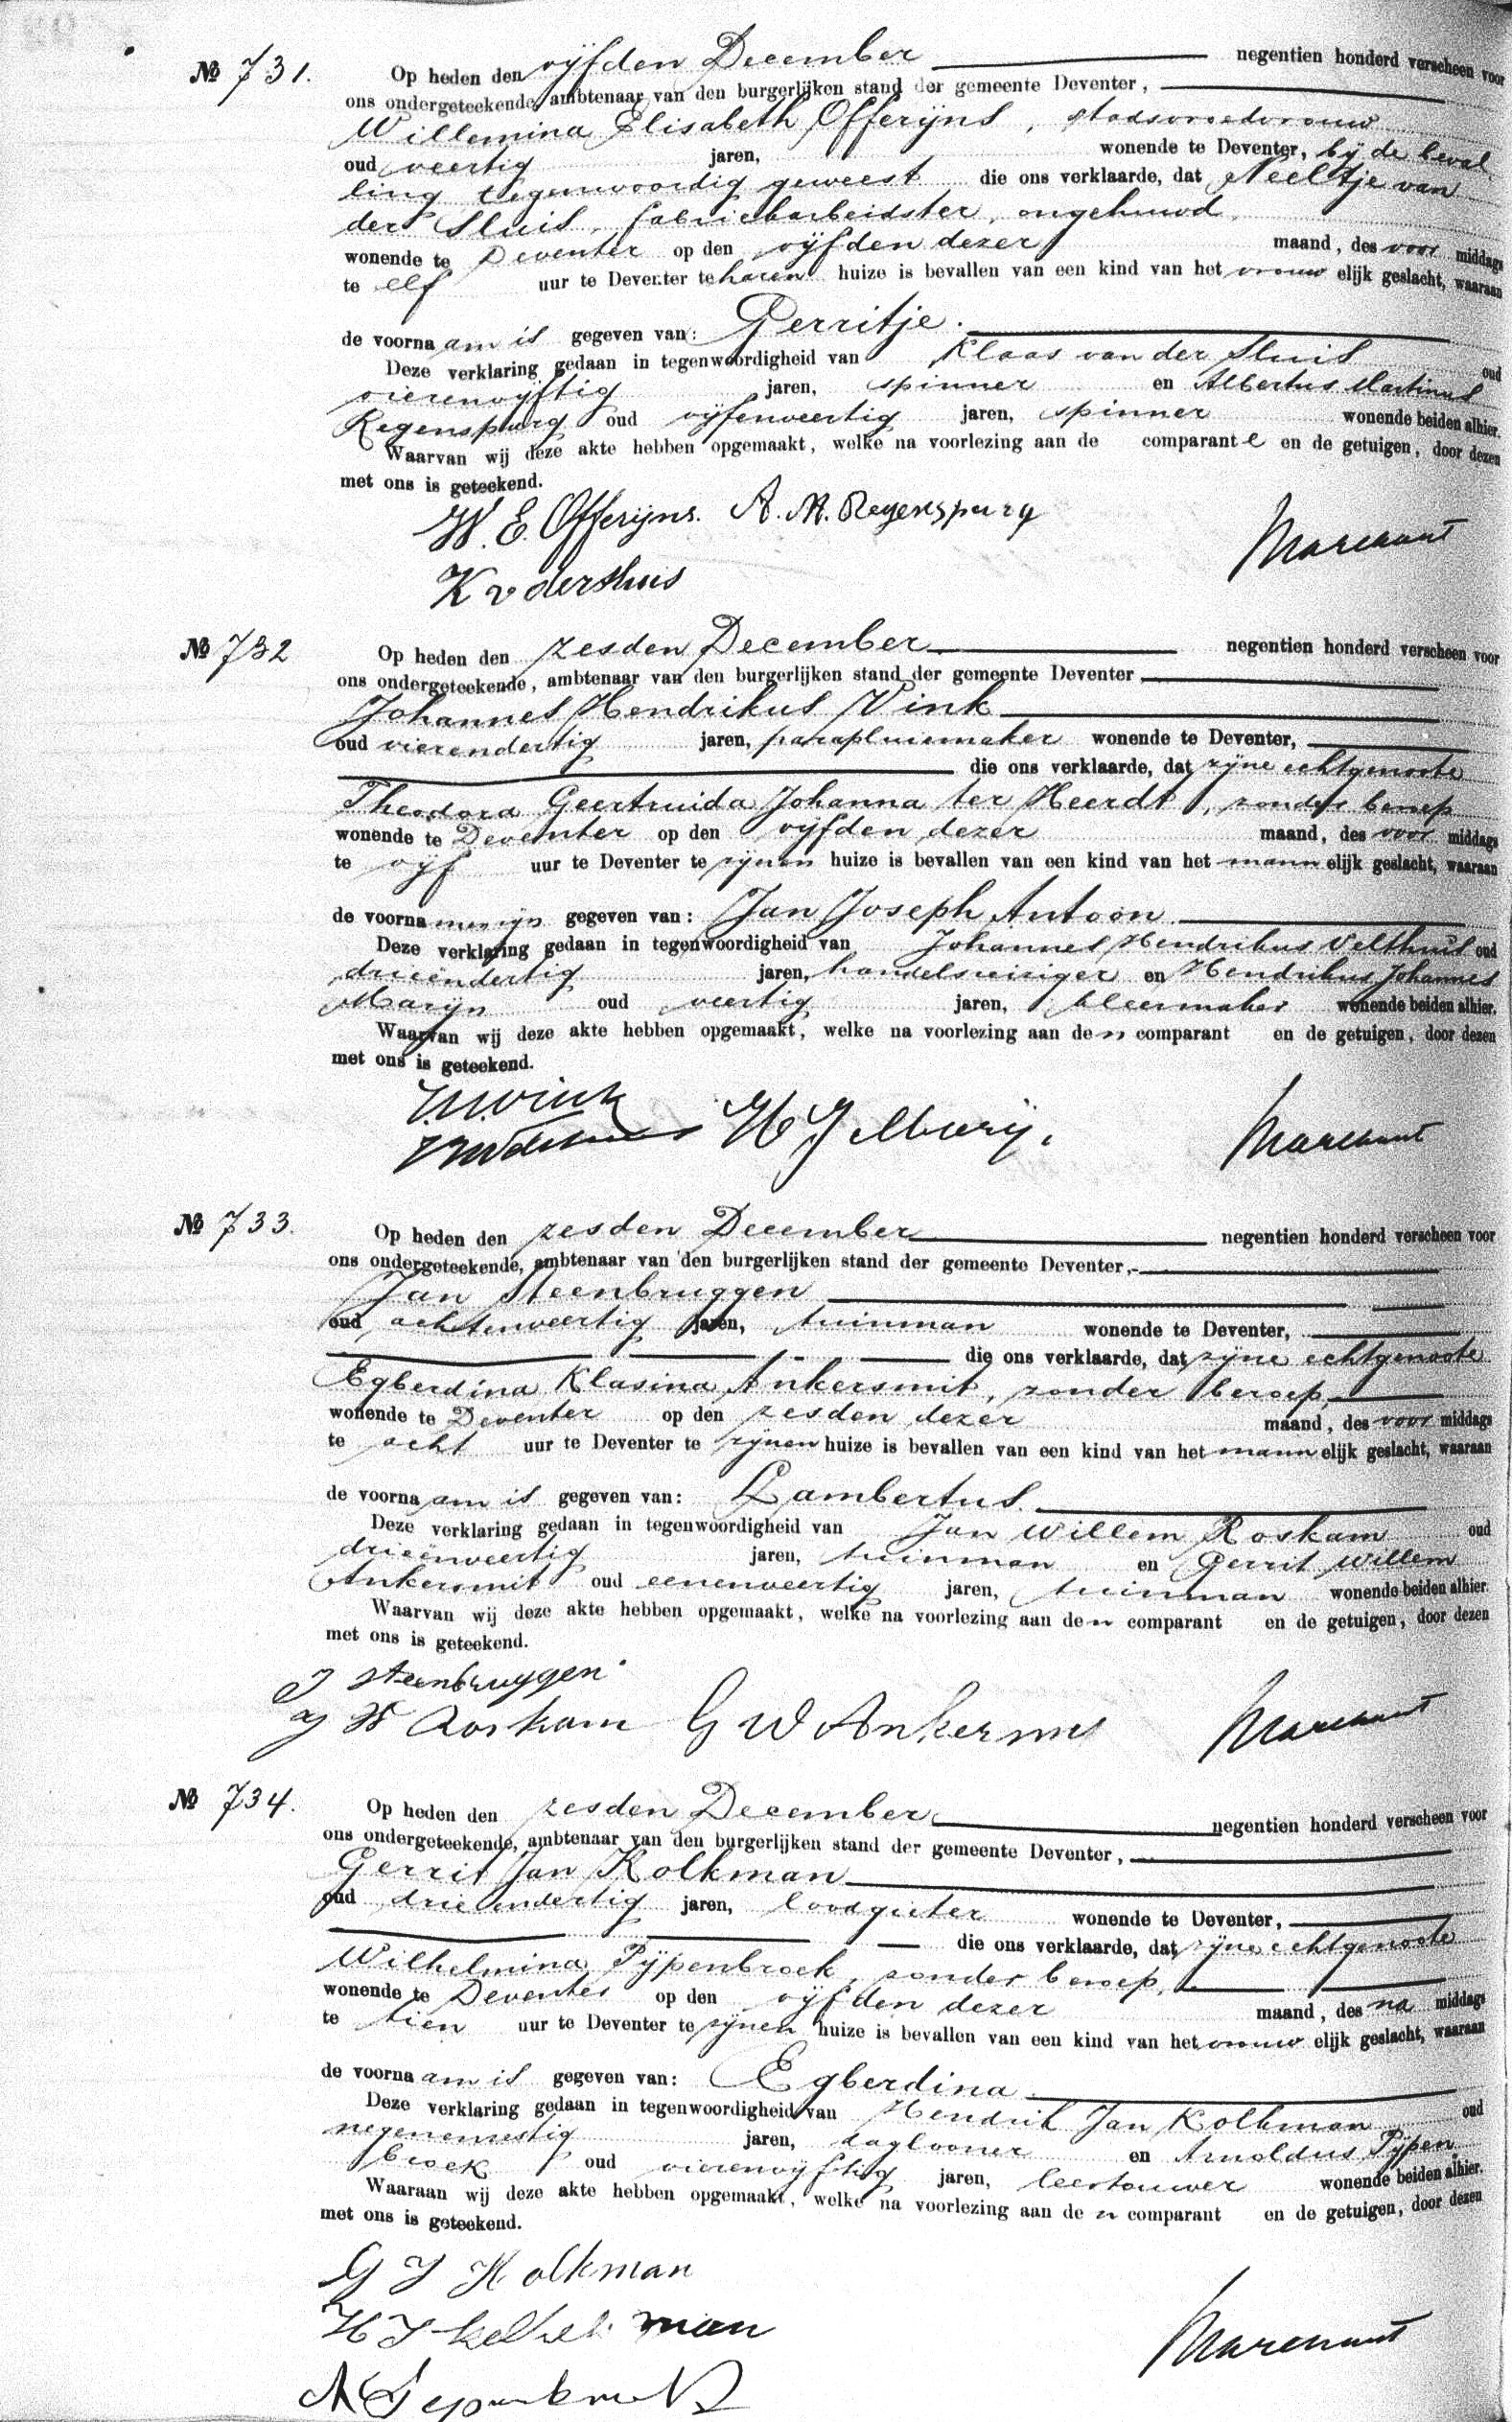 № 731. Op heden den vijfden December negentien honderd verscheen voor
ons ondergeteekende, ambtenaar van den burgerlijken stand der gemeente Deventer,
Willemina Elisabeth Offerijns, stadsvroedvrouw
oud veertig jaren, wonende te Deventer, bij de beval
ling tegenwoordig geweest die ons verklaarde, dat Neeltje van
der Sluis, fabriekarbeidster, ongehuwd,
wonende te Deventer op den vijfden dezer maand, des voor middags
te elf uur te Deventer te haren huize is bevallen van een kind van het vrouw elijk geslacht, waaraan
de voorna am is gegeven van: Gerritje.
Deze verklaring gedaan in tegenwoordigheid van Klaas van der Sluis oud
vierenvijftig jaren, spinner en Albertus Martinus
Regenspurg oud vijfenveertig jaren, spinner wonende beiden alhier.
Waarvan wij deze akte hebben opgemaakt, welke na voorlezing aan de comparant e en de getuigen, door dezen
met ons is geteekend.
W. E. Offerijns. A. M. Regenspurg
K v der Sluis Marchant
№ 732 Op heden den zesden December negentien honderd verscheen voor
ons ondergeteekende, ambtenaar van den burgerlijken stand der gemeente Deventer
Johannes Hendrikus Vink
oud vierendertig jaren, parapluiemaker wonende te Deventer,
die ons verklaarde, dat zijne echtgenoote
Theodora Geertruida Johanna ter Heerdt, zonder beroep
wonende te Deventer op den vijfden dezer maand, des voor middags
te vijf uur te Deventer te zijnen huize is bevallen van een kind van het mann elijk geslacht, waaraan
de voorna men zijn gegeven van: Jan Joseph Antoon
Deze verklaring gedaan in tegenwoordigheid van Johannes Hendrikus Velthuis oud
drieëndertig jaren, handelsreiziger en Hendrikus Johannes
Marijn oud veertig jaren, kleermaker wonende beiden alhier.
Waarvan wij deze akte hebben opgemaakt, welke na voorlezing aan de n comparant en de getuigen, door dezen
met ons is geteekend.
J.H. Vink
H J Marijn Marchant
№ 733. Op heden den zesden December negentien honderd verscheen voor
ons ondergeteekende, ambtenaar van den burgerlijken stand der gemeente Deventer,
Jan Steenbruggen
oud achtenveertig jaren, tuinman wonende te Deventer,
die ons verklaarde, dat zijne echtgenoote
Egberdina Klasina Ankersmit, zonder beroep,
wonende te Deventer op den zesden dezer maand, des voor middags
te acht uur te Deventer te zijnen huize is bevallen van een kind van het mann elijk geslacht, waaraan
de voorna am is gegeven van: Lambertus.
Deze verklaring gedaan in tegenwoordigheid van Jan Willem Roskam oud
drieënveertig jaren, tuinman en Gerrit Willem
Ankersmit oud eenenveertig jaren, tuinman wonende beiden alhier.
Waarvan wij deze akte hebben opgemaakt, welke na voorlezing aan de n comparant en de getuigen, door dezen
met ons is geteekend.
J Steenbruggen
J W Roskam G W Ankersmit Marchant
№ 734. Op heden den zesden December negentien honderd verscheen voor
ons ondergeteekende, ambtenaar van den burgerlijken stand der gemeente Deventer,
Gerrit Jan Kolkman
oud drieendertig jaren, loodgieter wonende te Deventer,
die ons verklaarde, dat zijne echtgenoote
Wilhelmina Pijpenbroek, zonder beroep,
wonende te Deventer op den vijfden dezer maand, des na middags
te tien uur te Deventer te zijnen huize is bevallen van een kind van het vrouw elijk geslacht, waaraan
de voorna am is gegeven van: Egberdina
Deze verklaring gedaan in tegenwoordigheid van Hendrik Jan Kolkman oud
negenenzestig jaren, daglooner en Arnoldus Pijpen
broek oud vierenvijftig jaren, leertouwer wonende beiden alhier.
Waaraan wij deze akte hebben opgemaakt, welke na voorlezing aan de n comparant en de getuigen, door dezen
met ons is geteekend.
G J Kolkman
H J Kolkman Marchant